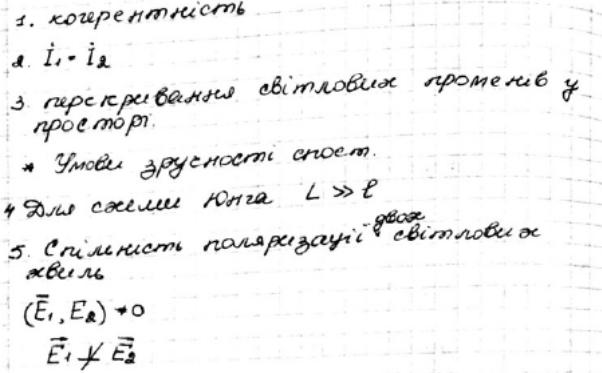 1. когерентність
2. İ₁ = İ₂
3. перекривання світлових променів у
просторі.
* Умови зручності спост.
4 Для схеми Юнга L >> ℓ
5. Спільність поляризації двох світлових
хвиль
(E̅₁, E₂) ≠ 0
E⃗₁ ⊥̸ E⃗₂